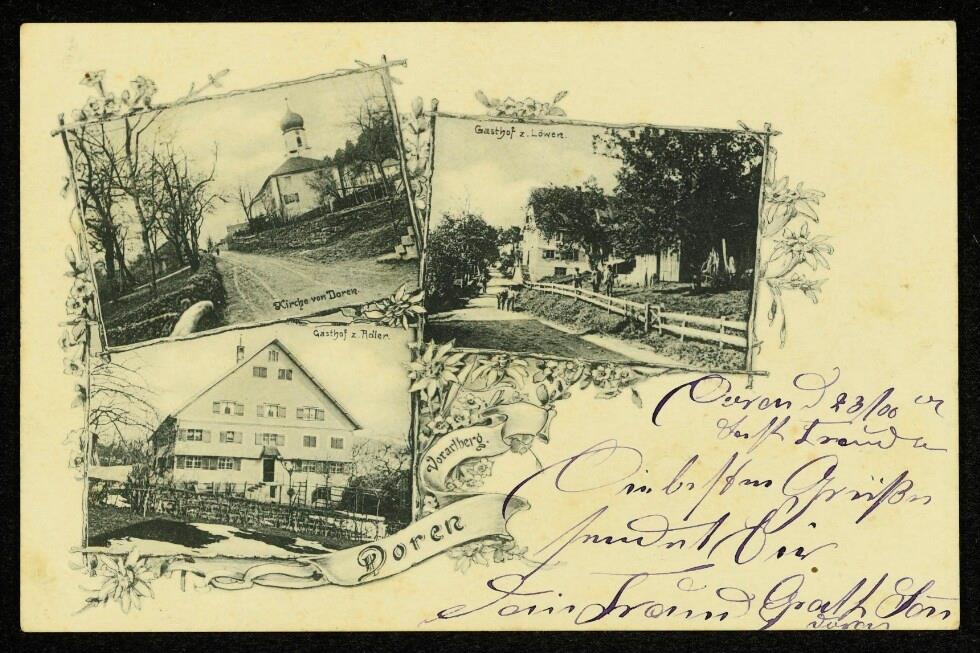 Kirche von Doren.
Gasthof z. Löwen.
Gasthof z. Adler.
Vorarlberg.
Doren
Doren d 23/00
Freund
Grüße
sendet Dir
Dein Freund
Doren